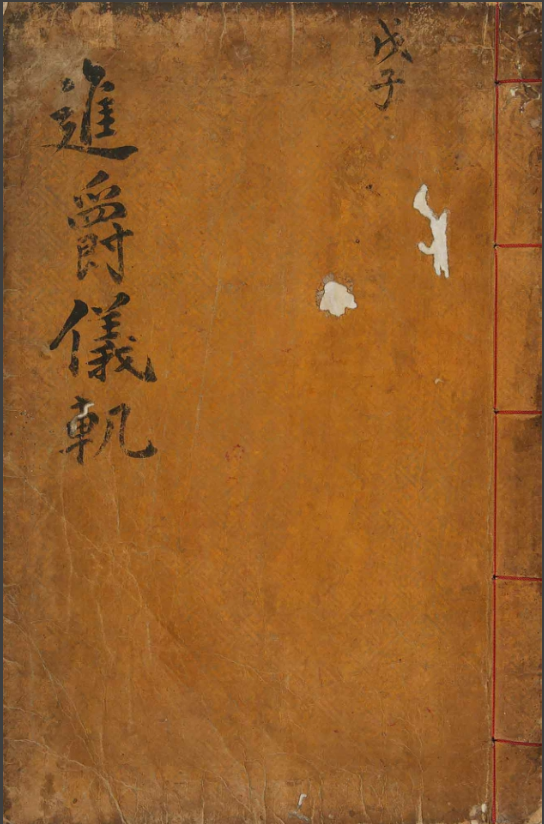 戊子
進爵儀軌